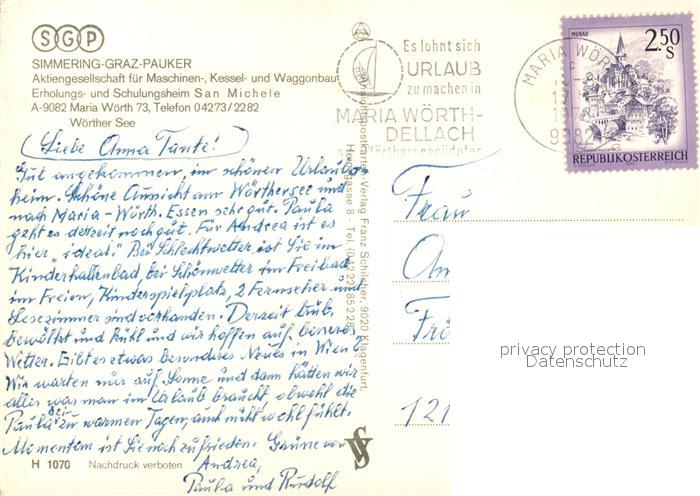 SGP
SIMMERING-GRAZ-PAUKER
Aktiengesellschaft für Maschinen-, Kessel- und Waggonbau
Erholungs- und Schulungsheim San Michele
A-9082 Maria Wörth 73, Telefon 04273/2282
Wörther See
Liebe Anna Tante!
Gut angekommen, im schönen Urlaubs
heim. Schöne Aussicht am Wörthersee und
nach Maria-Wörth. Essen sehr gut. Paula
geht es derzeit noch gut. Für Andrea ist es
hier „ideal“ Bei Schlechtwetter ist Sie im
Kinderhallenbad, bei Schönwetter im Freibad
im Freien, Kinderspielplatz, 2 Fernseher und
Lesezimmer sind vorhanden. Derzeit trüb,
bewölkt und kühl und wir hoffen auf besseres
Wetter. Gibt es etwas besonderes Neues in Wien?
Wir warten nur auf Sonne und dann hätten wir
alles was man im Urlaub braucht obwohl die
Paula bei zu warmen Tagen, auch nicht wohl fühlt.
Momentan ist Sie noch zufrieden. Grüße von
Andrea,
Paula und Rudolf
H 1070 Nachdruck verboten
Verlag Franz Schilcher, 9020 Klagenfurt,
Es lohnt sich
URLAUB
zu machen in
MARIA WÖRTH-
DELLACH
MARIA WÖR
9082
MURAU
2.50
S
REPUBLIK ÖSTERREICH
Frau
An
Frö
121
privacy protection
Datenschutz